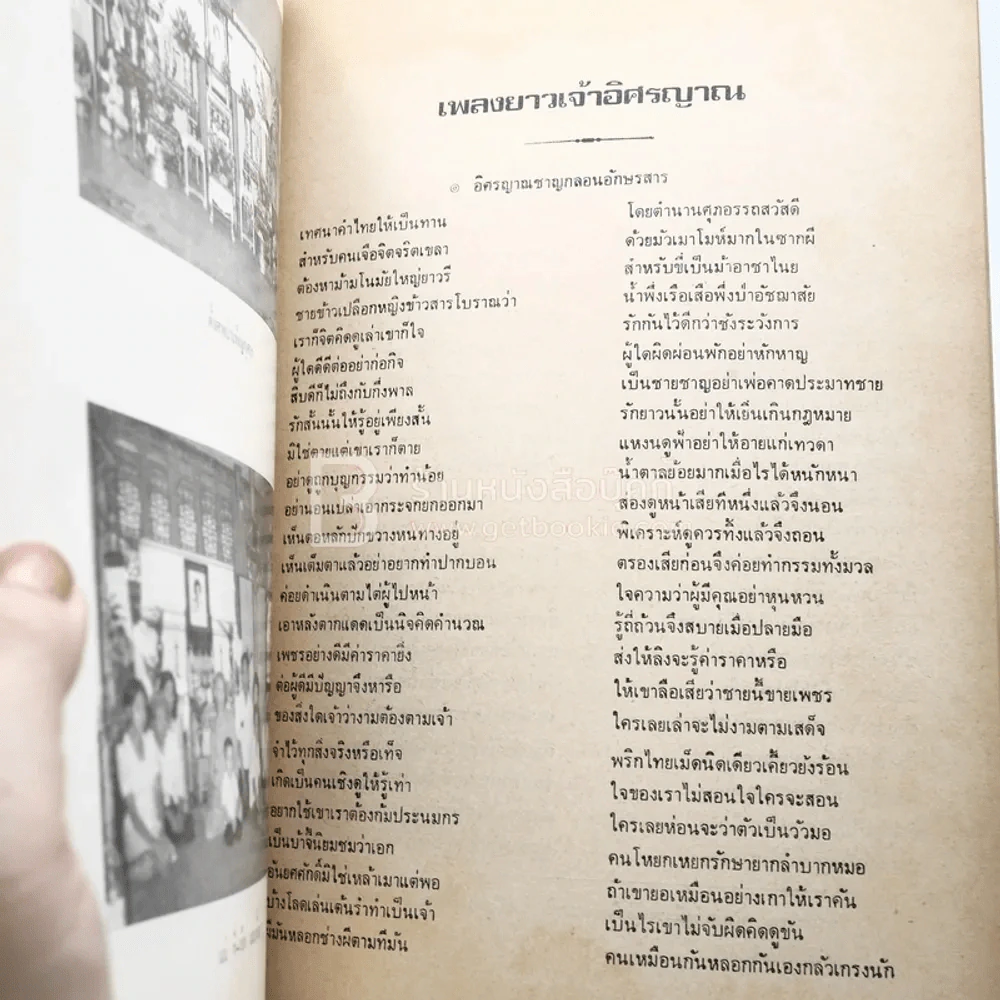 เพลงยาวเจ้าอิศรญาณ
๏ อิศรญาณชาญกลอนอักษรสาร
เทศนาคำไทยให้เป็นทาน โดยตำนานศุภอรรถสวัสดี
สำหรับคนเจือจิตจริตเขลา ด้วยมัวเมาโมห์มากในซากผี
ต้องหาม้ามโนมัยใหญ่ยาวรี สำหรับขี่เป็นม้าอาชาไนย
ชายข้าวเปลือกหญิงข้าวสารโบราณว่า น้ำพึ่งเรือเสือพึ่งป่าอัชฌาสัย
เราก็จิตคิดดูเล่าเขาก็ใจ รักกันไว้ดีกว่าชังระวังการ
ผู้ใดดีดีต่ออย่าก่อกิจ ผู้ใดผิดผ่อนพักอย่าหักหาญ
สิบดีก็ไม่ถึงกับกึ่งพาล เป็นชายชาญอย่าเพ่อคาดประมาทชาย
รักสั้นนั้นให้รู้อยู่เพียงสั้น รักยาวนั้นอย่าให้เยิ่นเกินกฎหมาย
มิใช่ตายแต่เขาเราก็ตาย แหงนดูฟ้าอย่าให้อายแก่เทวดา
อย่าดูถูกบุญกรรมว่าทำน้อย น้ำตาลย้อยมากเมื่อไรได้หนักหนา
อย่านอนเปล่าเอากระจกยกออกมา สองดูหน้าเสียทีหนึ่งแล้วจึงนอน
เห็นตอหลักปักขวางหนทางอยู่ พิเคราะห์ดูควรทึ้งแล้วจึงถอน
เห็นเต็มตาแล้วอย่าอยากทำปากบอน ตรองเสียก่อนจึงค่อยทำกรรมทั้งมวล
ค่อยดำเนินตามไต่ผู้ไปหน้า ใจความว่าผู้มีคุณอย่าหุนหวน
เอาหลังตากแดดเป็นนิจคิดคำนวณ รู้ถี่ถ้วนจึงสบายเมื่อปลายมือ
เพชรอย่างดีมีค่าราคายิ่ง ส่งให้ลิงจะรู้ค่าราคาหรือ
ต่อผู้ดีมีปัญญาจึงหารือ ให้เขาลือเสียว่าชายนี้ขายเพชร
ของสิ่งใดเจ้าว่างามต้องตามเจ้า ใครเลยเล่าจะไม่งามตามเสด็จ
จำไว้ทุกสิ่งจริงหรือเท็จ พริกไทยเม็ดนิดเดียวเคี้ยวยังร้อน
เกิดเป็นคนเชิงดูให้รู้เท่า ใจของเราไม่สอนใจใครจะสอน
อยากใช้เขาเราต้องก้มประนมกร ใครเลยห่อนจะว่าตัวเป็นวัวมอ
เป็นบ้าจี้นิยมชมว่าเอก คนโหยกเหยกรักษายากลำบากหมอ
อันยศศักดิ์มิใช่เหล้าเมาแต่พอ ถ้าเขายอเหมือนอย่างเกาให้เราคัน
บ้างโลดเล่นเต้นรำทำเป็นเจ้า เป็นไรเขาไม่จับผิดคิดดูขัน
ผีมันหลอกช่างผีตามทีมัน คนเหมือนกันหลอกกันเองกลัวเกรงนัก
ร้านหนังสือบุ๊คกี้
www.getbookie.com